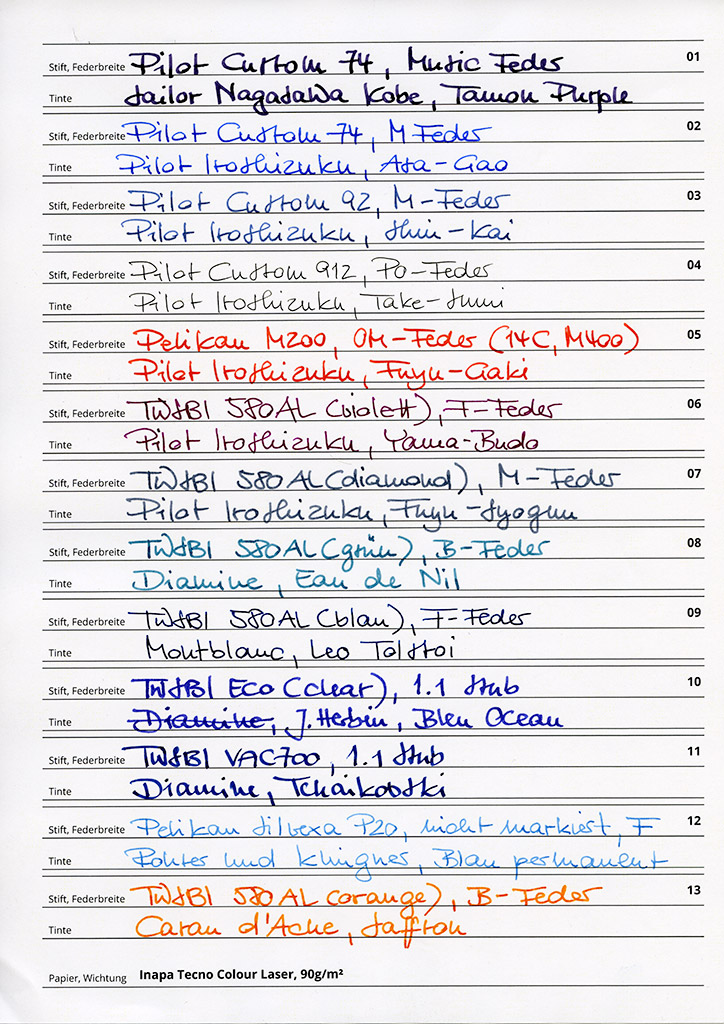 Stift, Federbreite Pilot Custom 74, Music Feder 01
Tinte Sailor Nagasawa Kobe, Tamon Purple
Stift, Federbreite Pilot Custom 74, M Feder 02
Tinte Pilot Iroshizuku, Asa-Gao
Stift, Federbreite Pilot Custom 92, M-Feder 03
Tinte Pilot Iroshizuku, Shin-Kai
Stift, Federbreite Pilot Custom 912, Po-Feder 04
Tinte Pilot Iroshizuku, Take-Sumi
Stift, Federbreite Pelikan M200, OM-Feder (14C, M400) 05
Tinte Pilot Iroshizuku, Fuyu-Gaki
Stift, Federbreite TWSBI 580AL (violett), F-Feder 06
Tinte Pilot Iroshizuku, Yama-Budo
Stift, Federbreite TWSBI 580AL (diamond), M-Feder 07
Tinte Pilot Iroshizuku, Fuyu-Syogun
Stift, Federbreite TWSBI 580AL (grün), B-Feder 08
Tinte Diamine, Eau de Nil
Stift, Federbreite TWSBI 580AL (blau), F-Feder 09
Tinte Montblanc, Leo Tolstoi
Stift, Federbreite TWSBI Eco (clear), 1.1 Stub 10
Tinte Diamine, J. Herbin, Bleu Ocean
Stift, Federbreite TWSBI VAC700, 1.1 Stub 11
Tinte Diamine, Tchaikovski
Stift, Federbreite Pelikan Silvexa P20, nicht markiert, F 12
Tinte Rohrer und Klingner, Blau permanent
Stift, Federbreite TWSBI 580AL (orange), B-Feder 13
Tinte Caran d'Ache, Saffron
Papier, Wichtung Inapa Tecno Colour Laser, 90g/m²